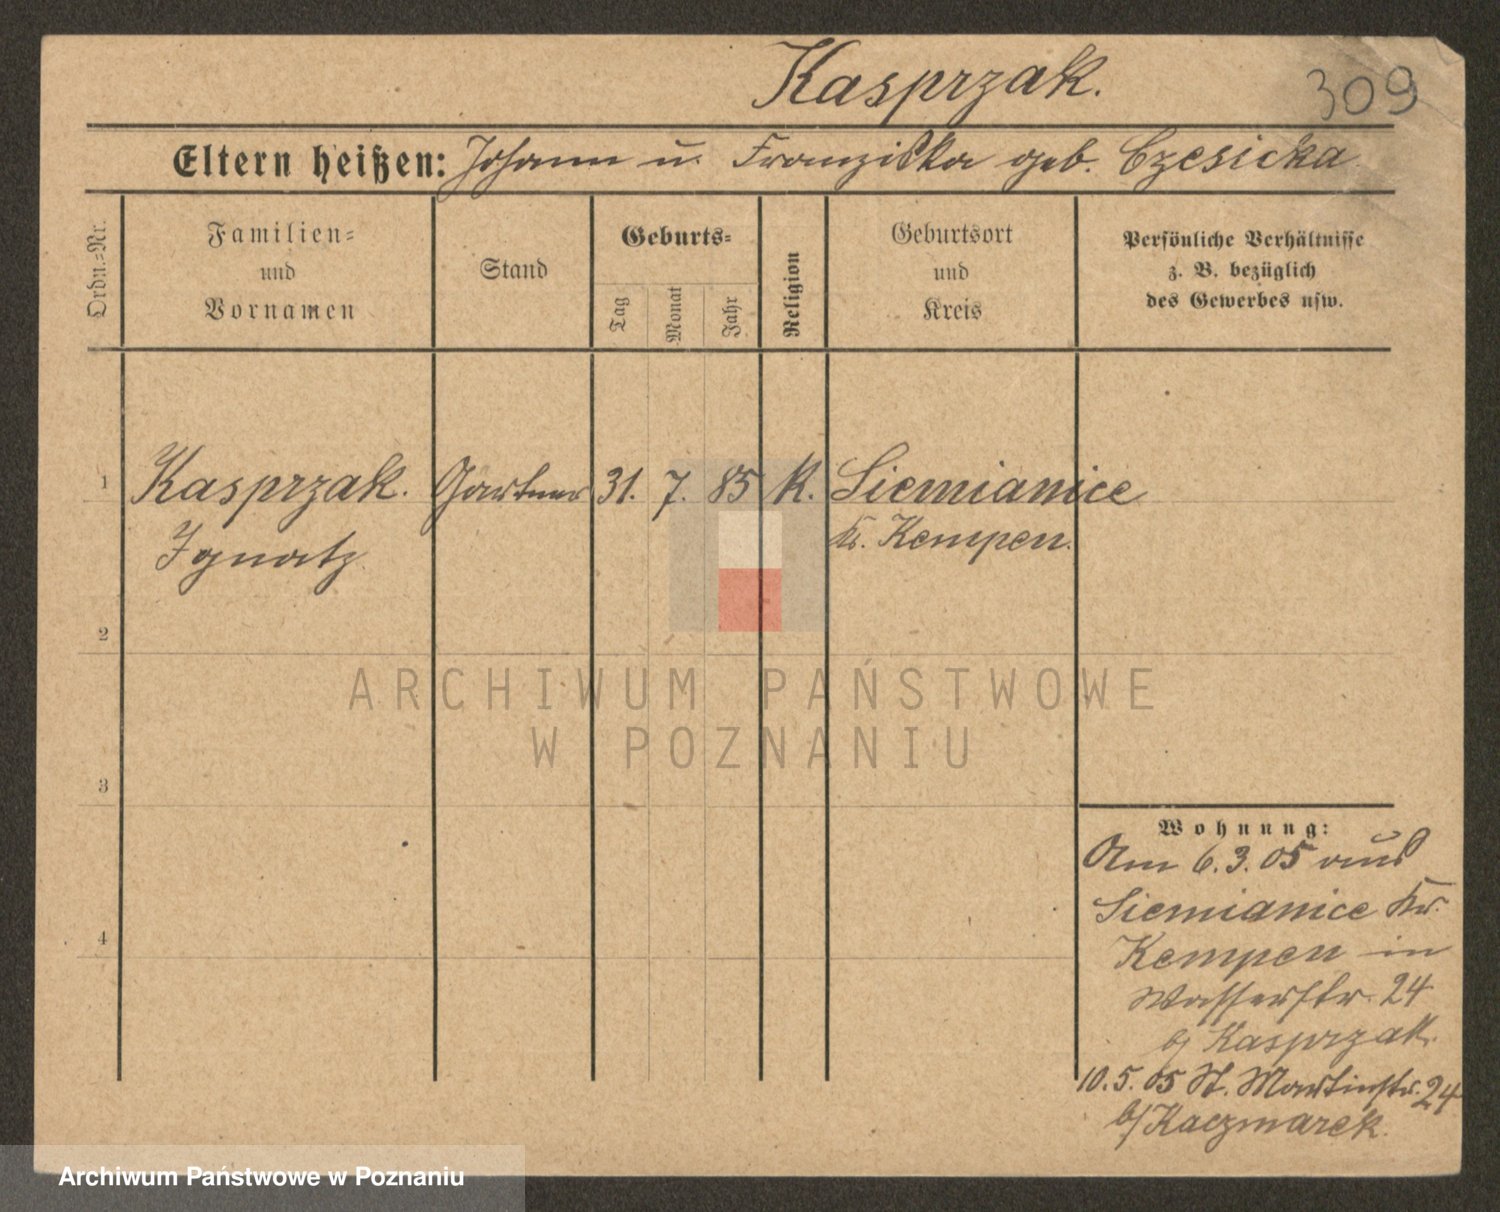 Kasprzak.
309
Eltern heißen: Johann u. Franziska geb. Czesicka.
Ordn.=Nr.
Familien=
und
Vornamen
Stand
Geburts=
Tag
Monat
Jahr
Religion
Geburtsort
und
Kreis
Persönliche Verhältnisse
z. B. bezüglich
des Gewerbes usw.
1 Kasprzak. Gärtner 31. 7. 85 K. Siemianice
Ignatz Kr. Kempen.
2
3
4
ARCHIWUM PAŃSTWOWE
W POZNANIU
Wohnung:
Am 6.3.05 aus
Siemianice Kr.
Kempen in
Wasserstr. 24
b/ Kasprzak.
10.5.05 St. Martinstr. 24
b/ Kaczmarek.
Archiwum Państwowe w Poznaniu